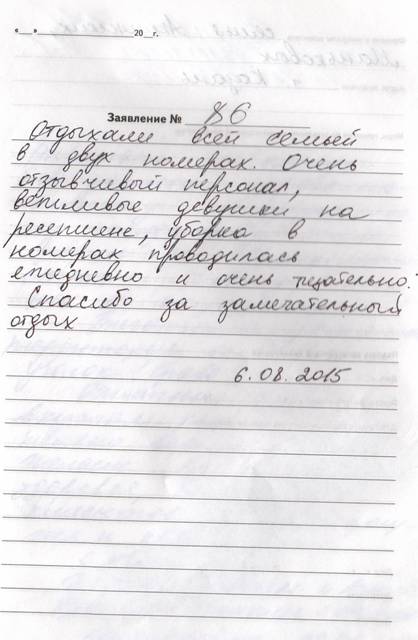 «___»____________20__г.
Заявление № 86
Отдыхали всей семьей
в двух номерах. Очень
отзывчивый персонал,
вежливые девушки на
ресепшене, уборка в
номерах проводилась
ежедневно и очень тщательно.
Спасибо за замечательный
отдых
6.08.2015